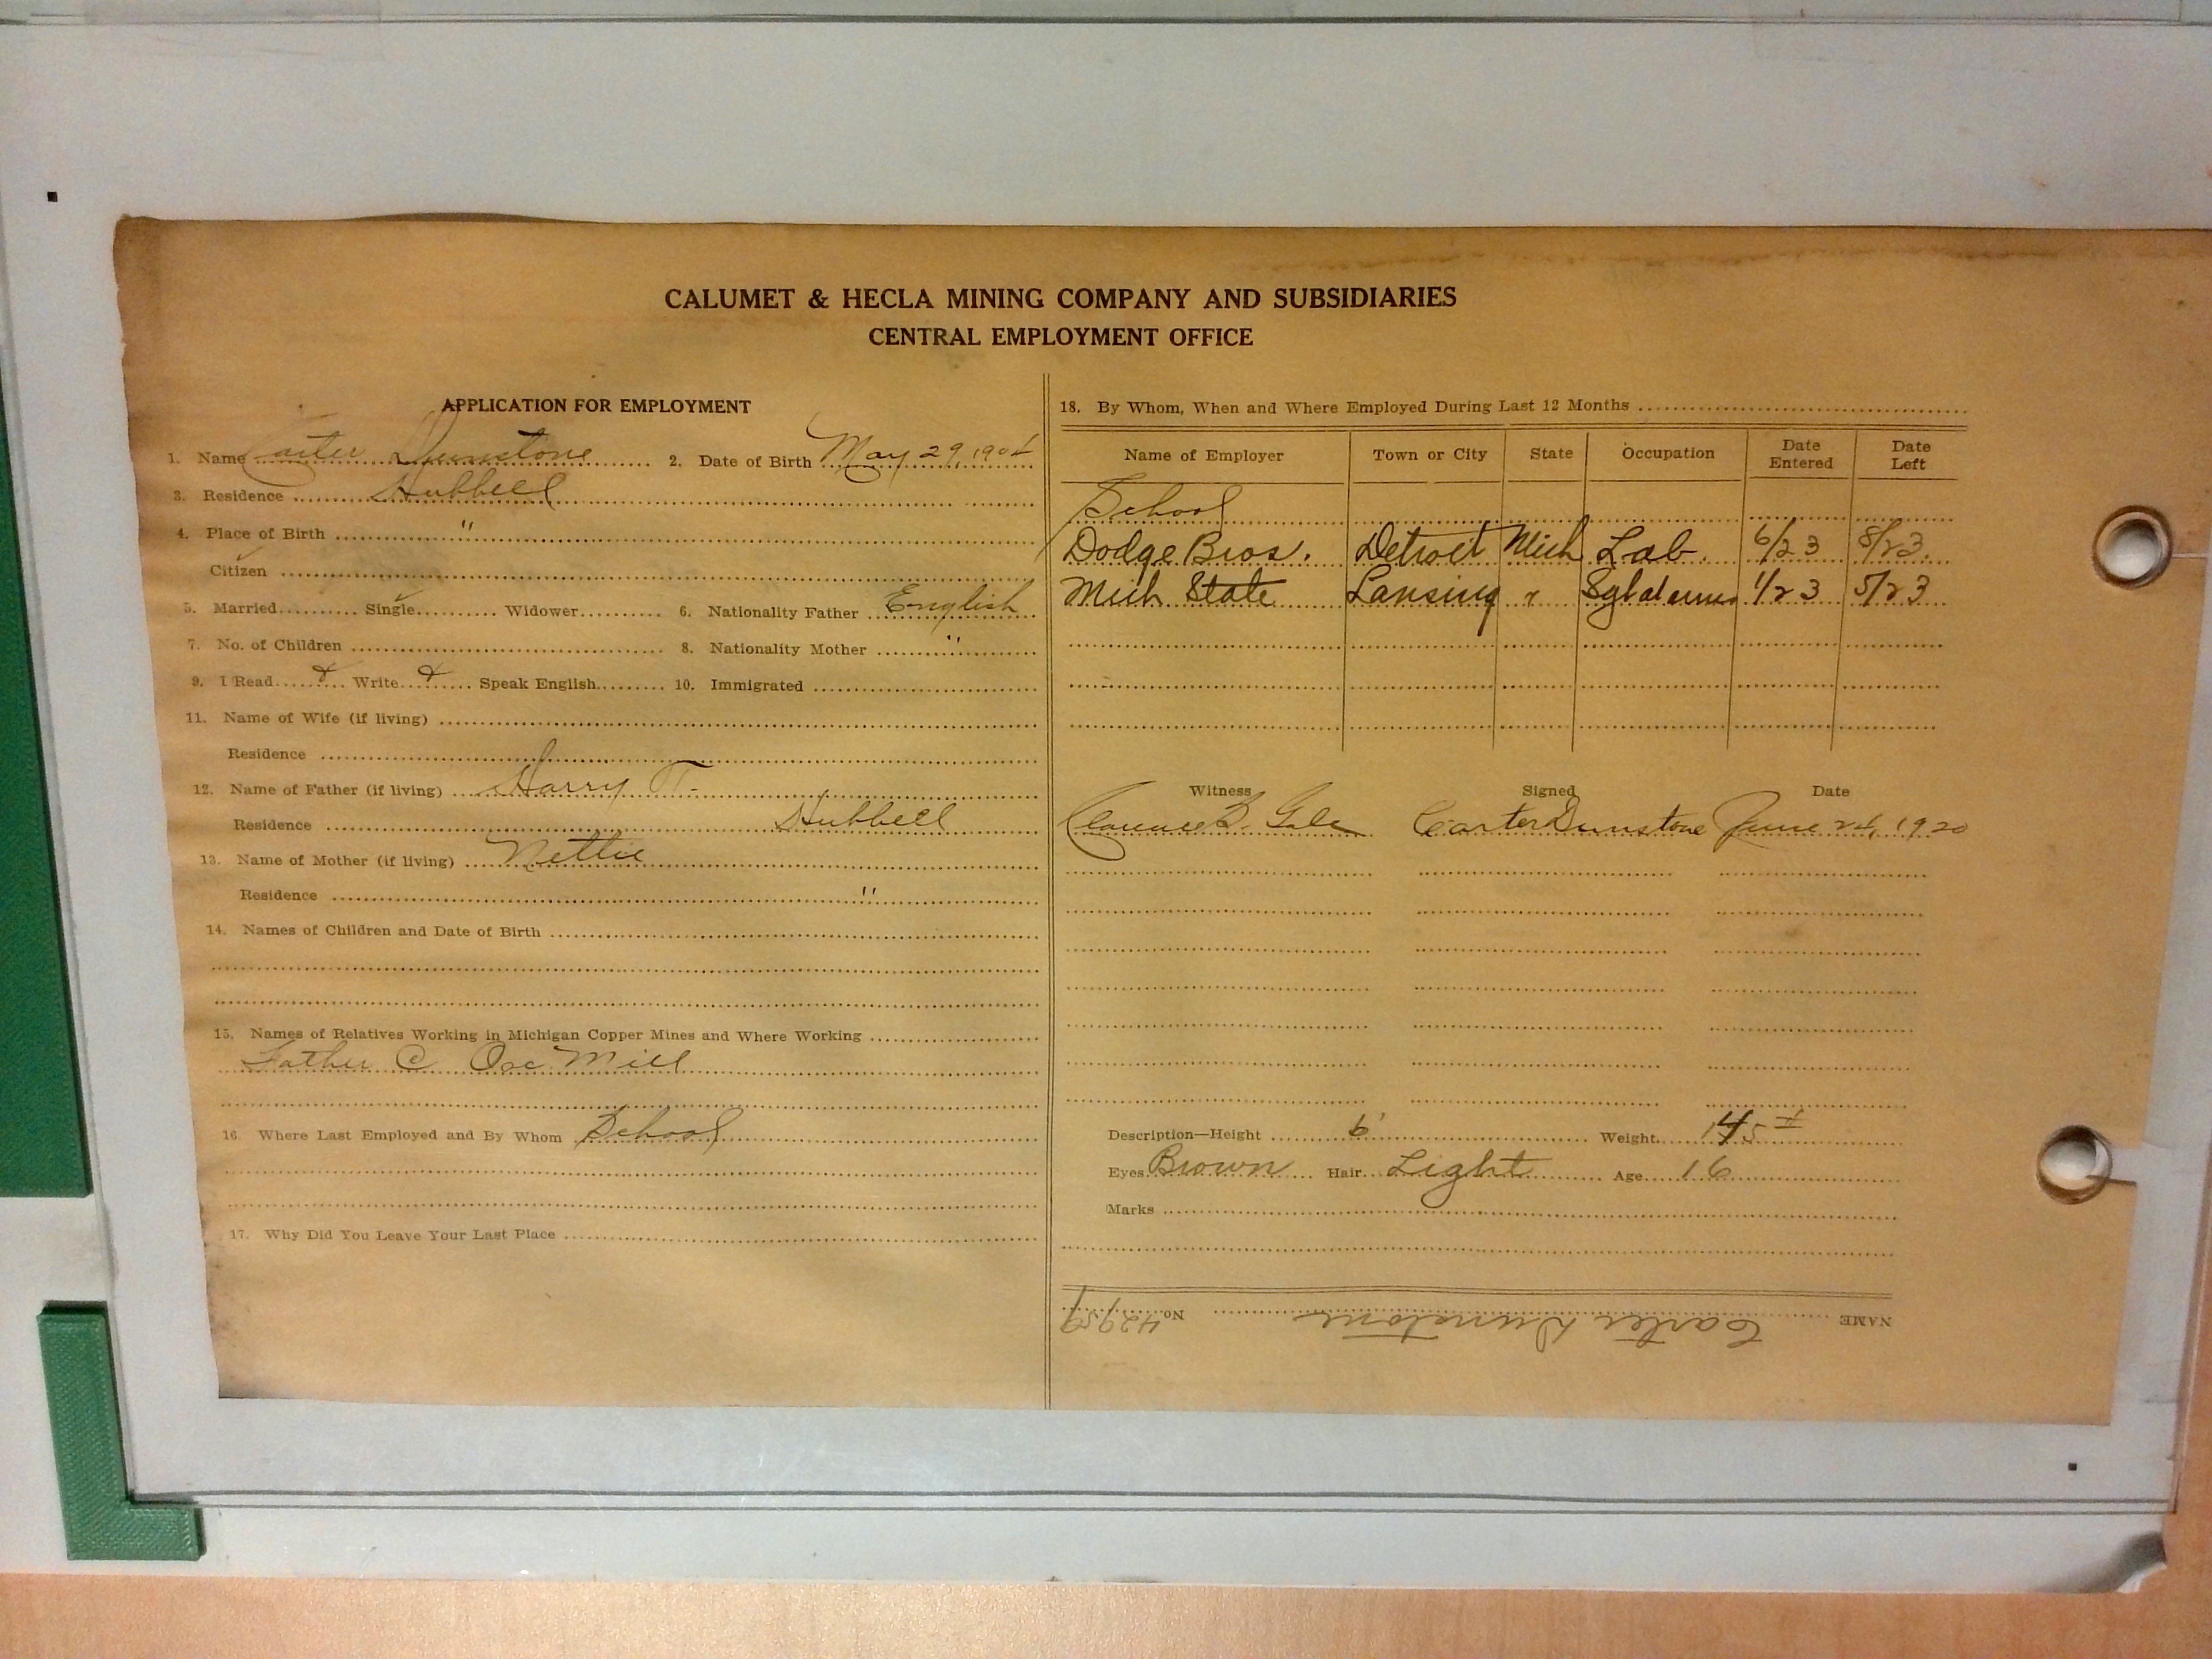 CALUMET & HECLA MINING COMPANY AND SUBSIDIARIES
CENTRAL EMPLOYMENT OFFICE
APPLICATION FOR EMPLOYMENT
1. Name Carter Dunstone 2. Date of Birth May 29, 1904
3. Residence Hubbell
4. Place of Birth "
Citizen
5. Married Single Widower 6. Nationality Father English
7. No. of Children 8. Nationality Mother "
9. I Read Write Speak English 10. Immigrated
11. Name of Wife (if living)
Residence
12. Name of Father (if living) Harry T.
Residence Hubbell
13. Name of Mother (if living) Nettie
Residence "
14. Names of Children and Date of Birth
15. Names of Relatives Working in Michigan Copper Mines and Where Working
Father @ Osc Mill
16. Where Last Employed and By Whom School
17. Why Did You Leave Your Last Place
18. By Whom, When and Where Employed During Last 12 Months
Name of Employer Town or City State Occupation Date Entered Date Left
School
Dodge Bros. Detroit Mich Lab. 6/23 8/23.
Mich State Lansing " 1/23 5/23
Witness Signed Date
Clarence B. Gale Carter Dunstone June 24, 1920
Description—Height 6' Weight 145 #
Eyes Brown Hair Light Age 16
Marks
NAME Carter Dunstone No. 42959